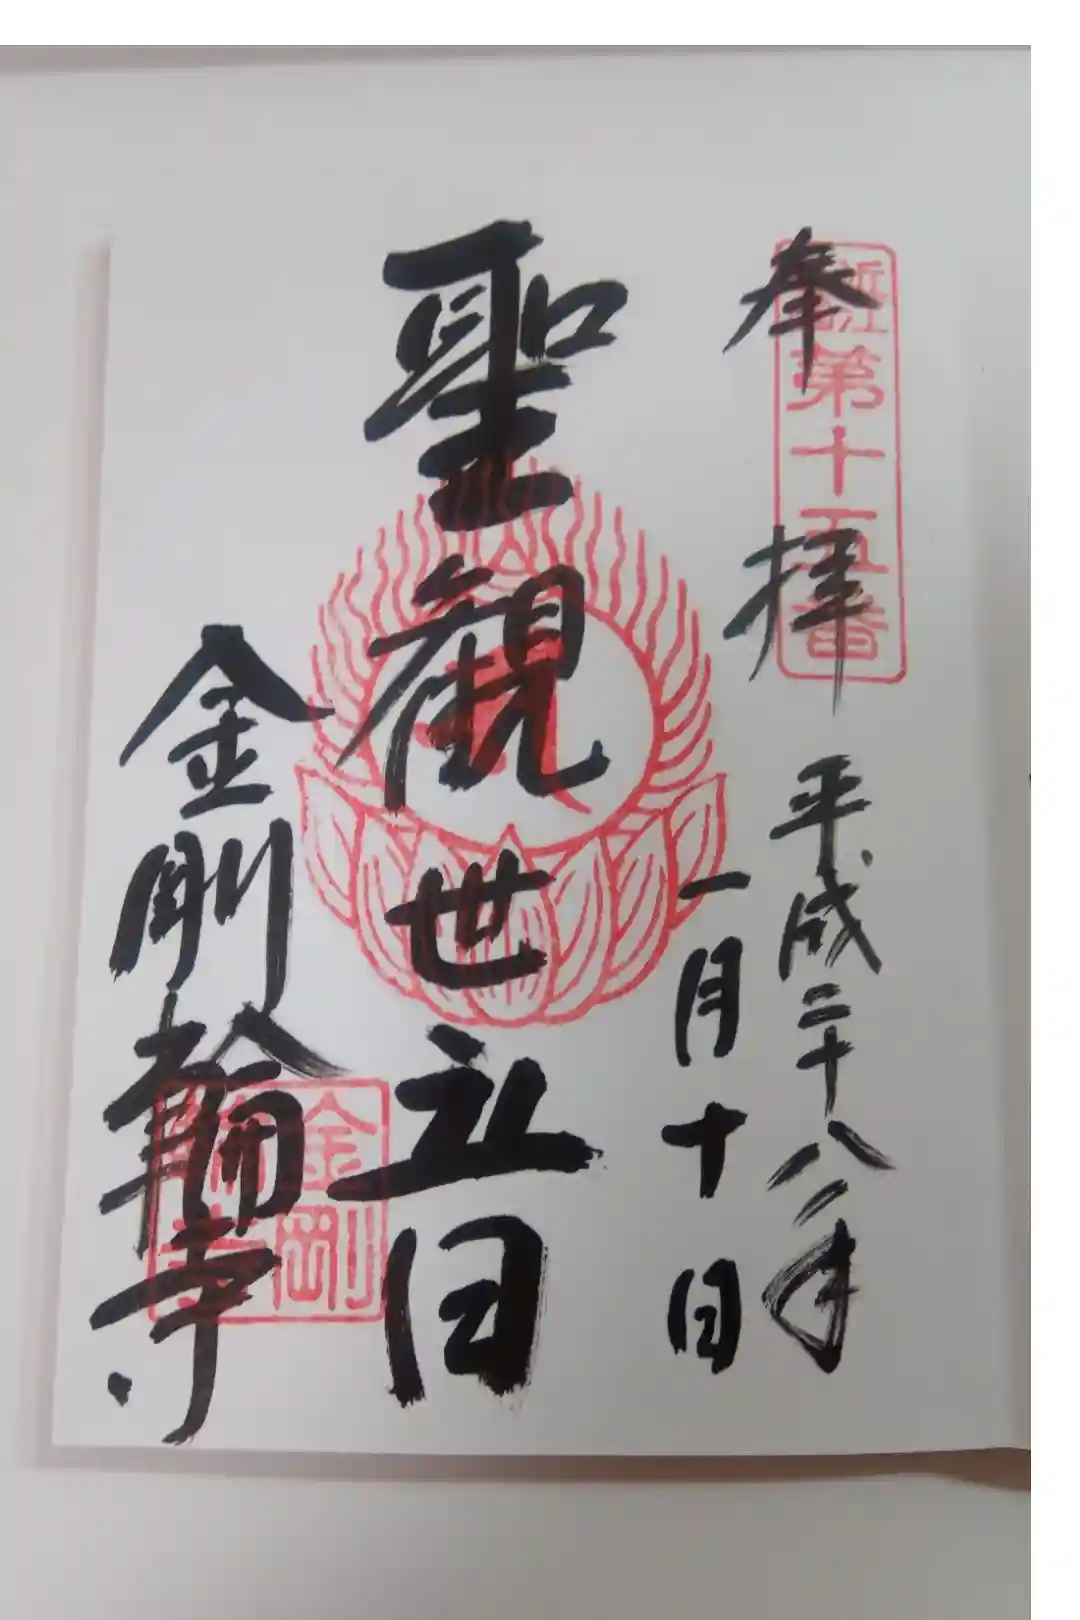 奉拝
第十五番
平成二十八年
一月十日
聖観世音
金剛輪寺
金剛輪寺